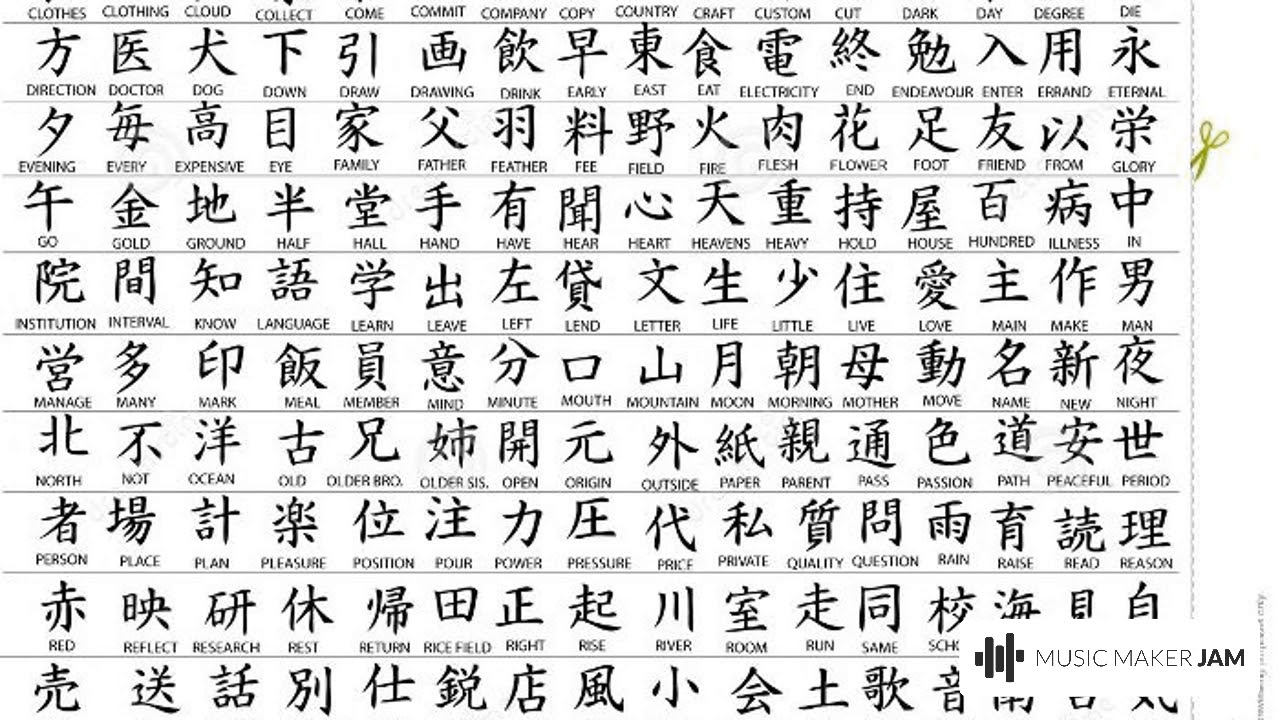 CLOTHES CLOTHING CLOUD COLLECT COME COMMIT COMPANY COPY COUNTRY CRAFT CUSTOM CUT DARK DAY DEGREE DIE
方 医 犬 下 引 画 飲 早 東 食 電 終 勉 入 用 永
DIRECTION DOCTOR DOG DOWN DRAW DRAWING DRINK EARLY EAST EAT ELECTRICITY END ENDEAVOUR ENTER ERRAND ETERNAL
夕 毎 高 目 家 父 羽 料 野 火 肉 花 足 友 以 栄
EVENING EVERY EXPENSIVE EYE FAMILY FATHER FEATHER FEE FIELD FIRE FLESH FLOWER FOOT FRIEND FROM GLORY
午 金 地 半 堂 手 有 聞 心 天 重 持 屋 百 病 中
GO GOLD GROUND HALF HALL HAND HAVE HEAR HEART HEAVENS HEAVY HOLD HOUSE HUNDRED ILLNESS IN
院 間 知 語 学 出 左 貸 文 生 少 住 愛 主 作 男
INSTITUTION INTERVAL KNOW LANGUAGE LEARN LEAVE LEFT LEND LETTER LIFE LITTLE LIVE LOVE MAIN MAKE MAN
営 多 印 飯 員 意 分 口 山 月 朝 母 動 名 新 夜
MANAGE MANY MARK MEAL MEMBER MIND MINUTE MOUTH MOUNTAIN MOON MORNING MOTHER MOVE NAME NEW NIGHT
北 不 洋 古 兄 姉 開 元 外 紙 親 通 色 道 安 世
NORTH NOT OCEAN OLD OLDER BRO. OLDER SIS. OPEN ORIGIN OUTSIDE PAPER PARENT PASS PASSION PATH PEACEFUL PERIOD
者 場 計 楽 位 注 力 圧 代 私 質 問 雨 育 読 理
PERSON PLACE PLAN PLEASURE POSITION POUR POWER PRESSURE PRICE PRIVATE QUALITY QUESTION RAIN RAISE READ REASON
赤 映 研 休 帰 田 正 起 川 室 走 同 校 海 自
RED REFLECT RESEARCH REST RETURN RICE FIELD RIGHT RISE RIVER ROOM RUN SAME
売 送 話 別 仕 鋭 店 風 小 会 土 歌 音
MUSIC MAKER JAM